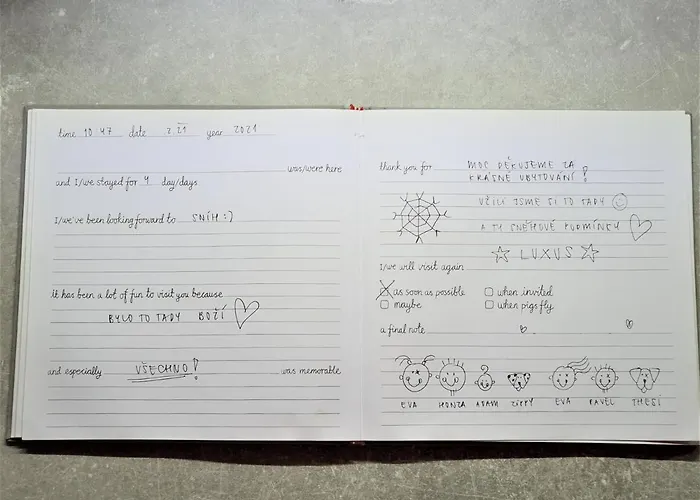 time 10 47 date 2.21 year 2021
was/were here
and I/we stayed for 4 day/days
I/we've been looking forward to SNÍH :)
it has been a lot of fun to visit you because
BYLO TO TADY BOŽÍ
and especially VŠECHNO! was memorable
thank you for MOC DĚKUJEME ZA
KRÁSNÉ UBYTOVÁNÍ!
UŽILI JSME SI TO TADY
A TY SNĚHOVÉ PODMÍNKY
LUXUS
I/we will visit again
as soon as possible when invited
maybe when pigs fly
a final note
EVA HONZA ADAM ZIPPY EVA PAVEL